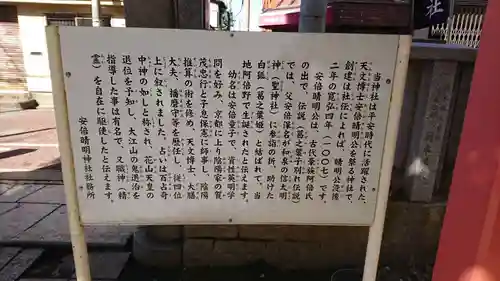 当神社は平安時代に活躍された、
天文博士安倍晴明公を祭る神社で、
創建は社伝によれば、晴明公没後
二年の寛弘四年(一〇〇七)です。
安倍晴明公は、古代豪族阿倍氏
の出で、伝説(葛之葉子別れ伝説)
では、父安倍保名が和泉の信太明
神(聖神社)に参詣の折、助けた
白狐(葛之葉姫)と結ばれて、当
地阿倍野で生誕されたと伝えます。
幼名は安倍童子で、資性英明学
問を好み、京都に上り陰陽家の賀
茂忠行と子息保憲に師事し、陰陽
推算の術を修め、天文博士、大膳
大夫、播磨守等を歴任し、従四位
上に叙されました。占いは百占奇
中神の如しと称され、花山天皇の
退位を予知し、大江山の鬼退治を
指導した事は有名で、又職神(精
霊)を自在に駆使したと伝えます。
安倍晴明神社社務所
社